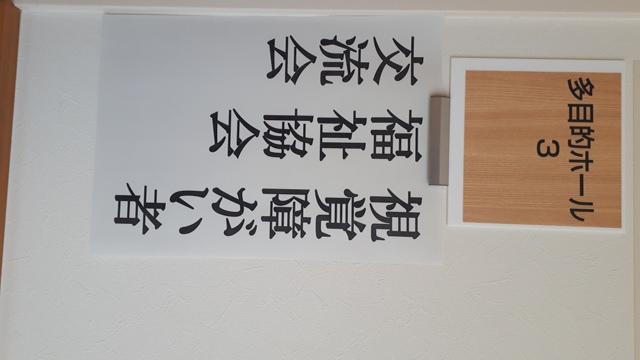 多目的ホール
3
視覚障がい者
福祉協会
交流会